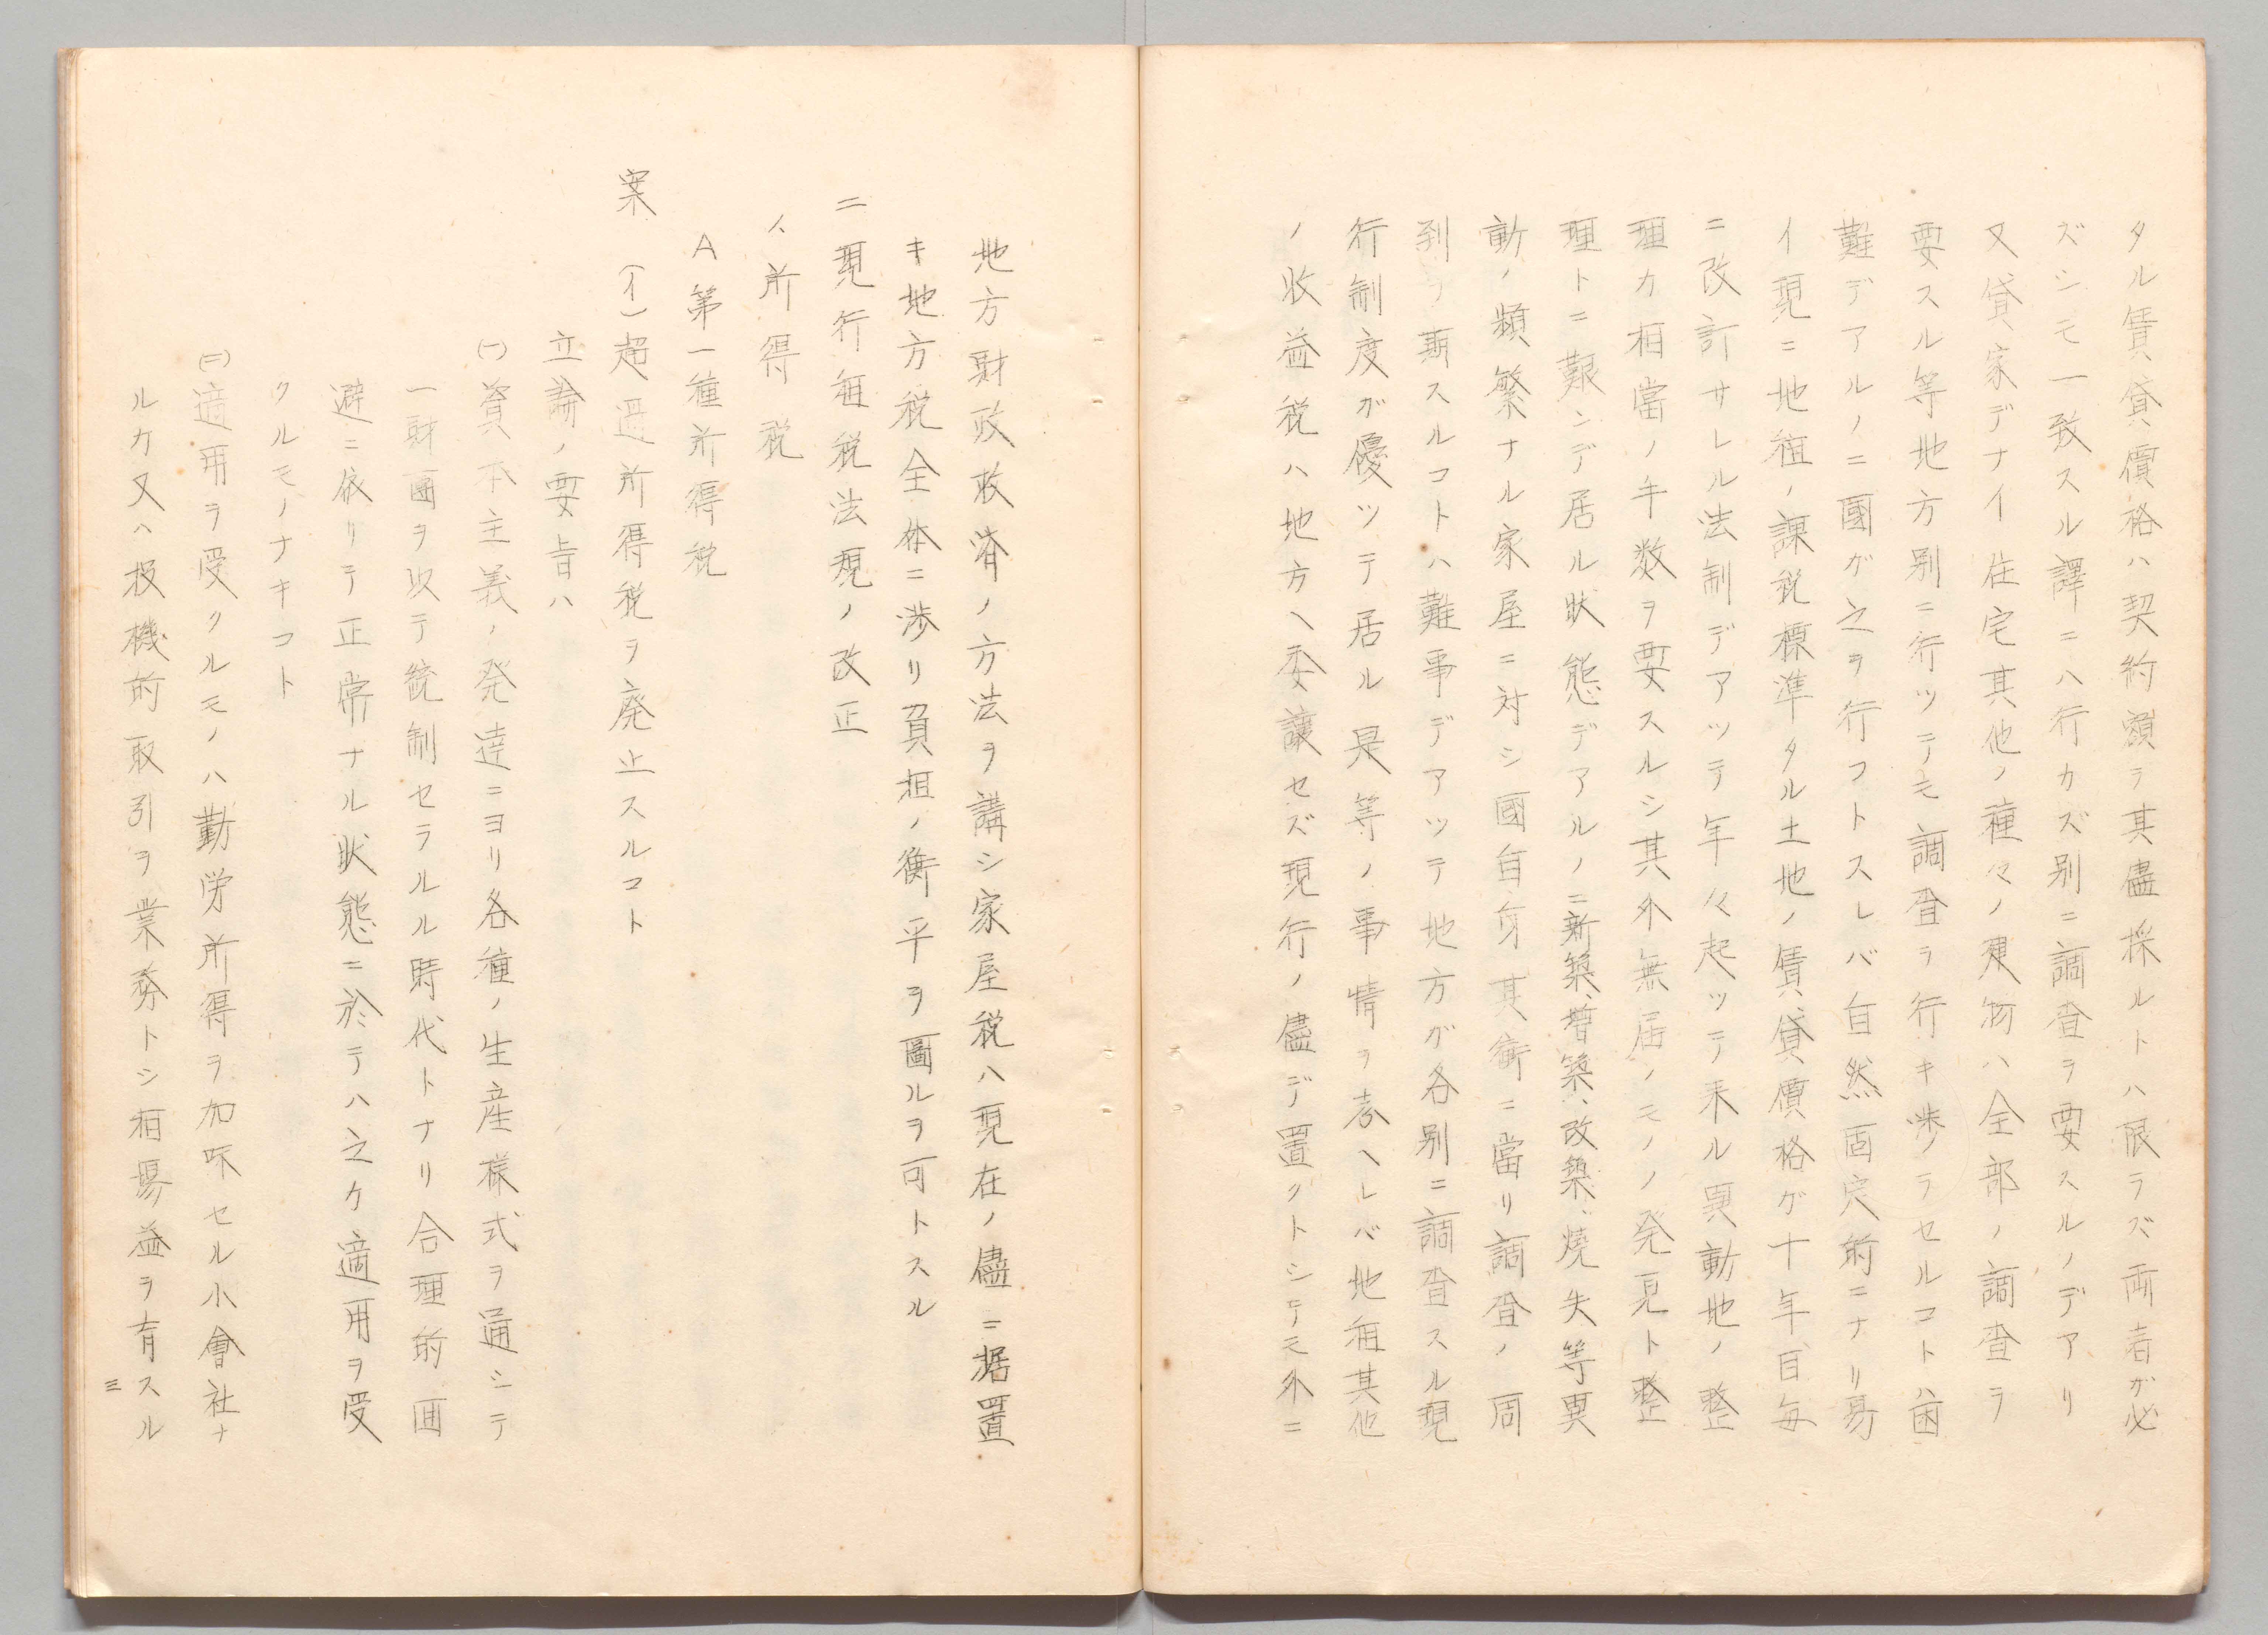 タル賃貸價格ハ契約額ヲ其儘採ルトハ限ラズ両者ガ必
ズシモ一致スル譯ニハ行カズ別ニ調査ヲ要スルノデアリ
又貸家デナイ住宅其他ノ種々ノ建物ハ全部ノ調査ヲ
要スル等地方別ニ行ツテモ調査ヲ行キ渉ラセルコトハ困
難デアルノニ國ガ之ヲ行フトスレバ自然固定的ニナリ易
イ現ニ地租ノ課税標準タル土地ノ賃貸價格ガ十年目毎
ニ改訂サレル法制デアツテ年々起ツテ来ル異動地ノ整
理カ相當ノ手数ヲ要スルシ其外無届ノモノノ発見ト整
理トニ艱ンデ居ル状態デアルノニ新築、増築、改築、焼失等異
動ノ頻繁ナル家屋ニ対シ國自身其衝ニ當リ調査ノ周
到ヲ期スルコトハ難事デアツテ地方ガ各別ニ調査スル現
行制度ガ優ツテ居ル是等ノ事情ヲ考ヘレバ地租其他
ノ收益税ハ地方ヘ委譲セズ現行ノ儘デ置クトシテモ外ニ
地方財政救済ノ方法ヲ講シ家屋税ハ現在ノ儘ニ据置
キ地方税全体ニ渉リ負担ノ衡平ヲ圖ルヲ可トスル
二現行租税法規ノ改正
イ、所得税
A第一種所得税
案(イ)超過所得税ヲ廃止スルコト
立論ノ要旨ハ
(一)資本主義ノ発達ニヨリ各種ノ生産様式ヲ通シテ
一財團ヲ以テ統制セラルル時代トナリ合理的画
避ニ依リテ正常ナル状態ニ於テハ之ケ適用ヲ受
クルモノナキコト
(二)適用ヲ受クルモノハ勤労所得ヲ加味セル小會社ナ
ルカ又ハ投機的取引ヲ業務トシ相場益ヲ有スル
三